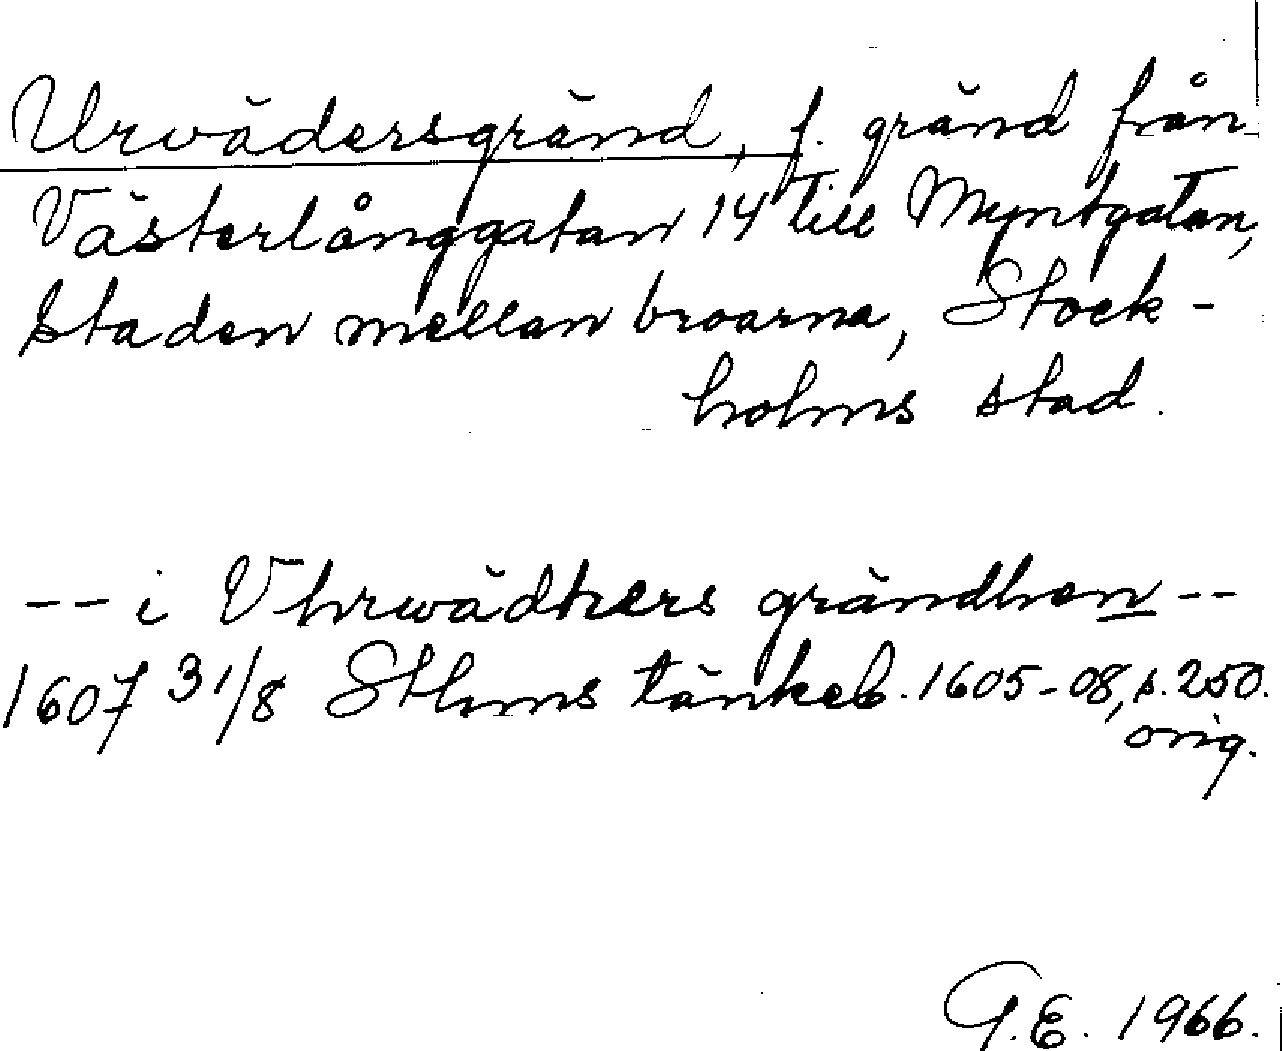 Urvädersgränd, f. gränd från
Västerlånggatan 14 till Myntgatan,
staden mellan broarna, Stock-
holms stad.
-- i Vhrwädhers grändhen --
1607 31/8 Sthms tänkeb. 1605-08, s. 250.
orig.
G.E. 1966.